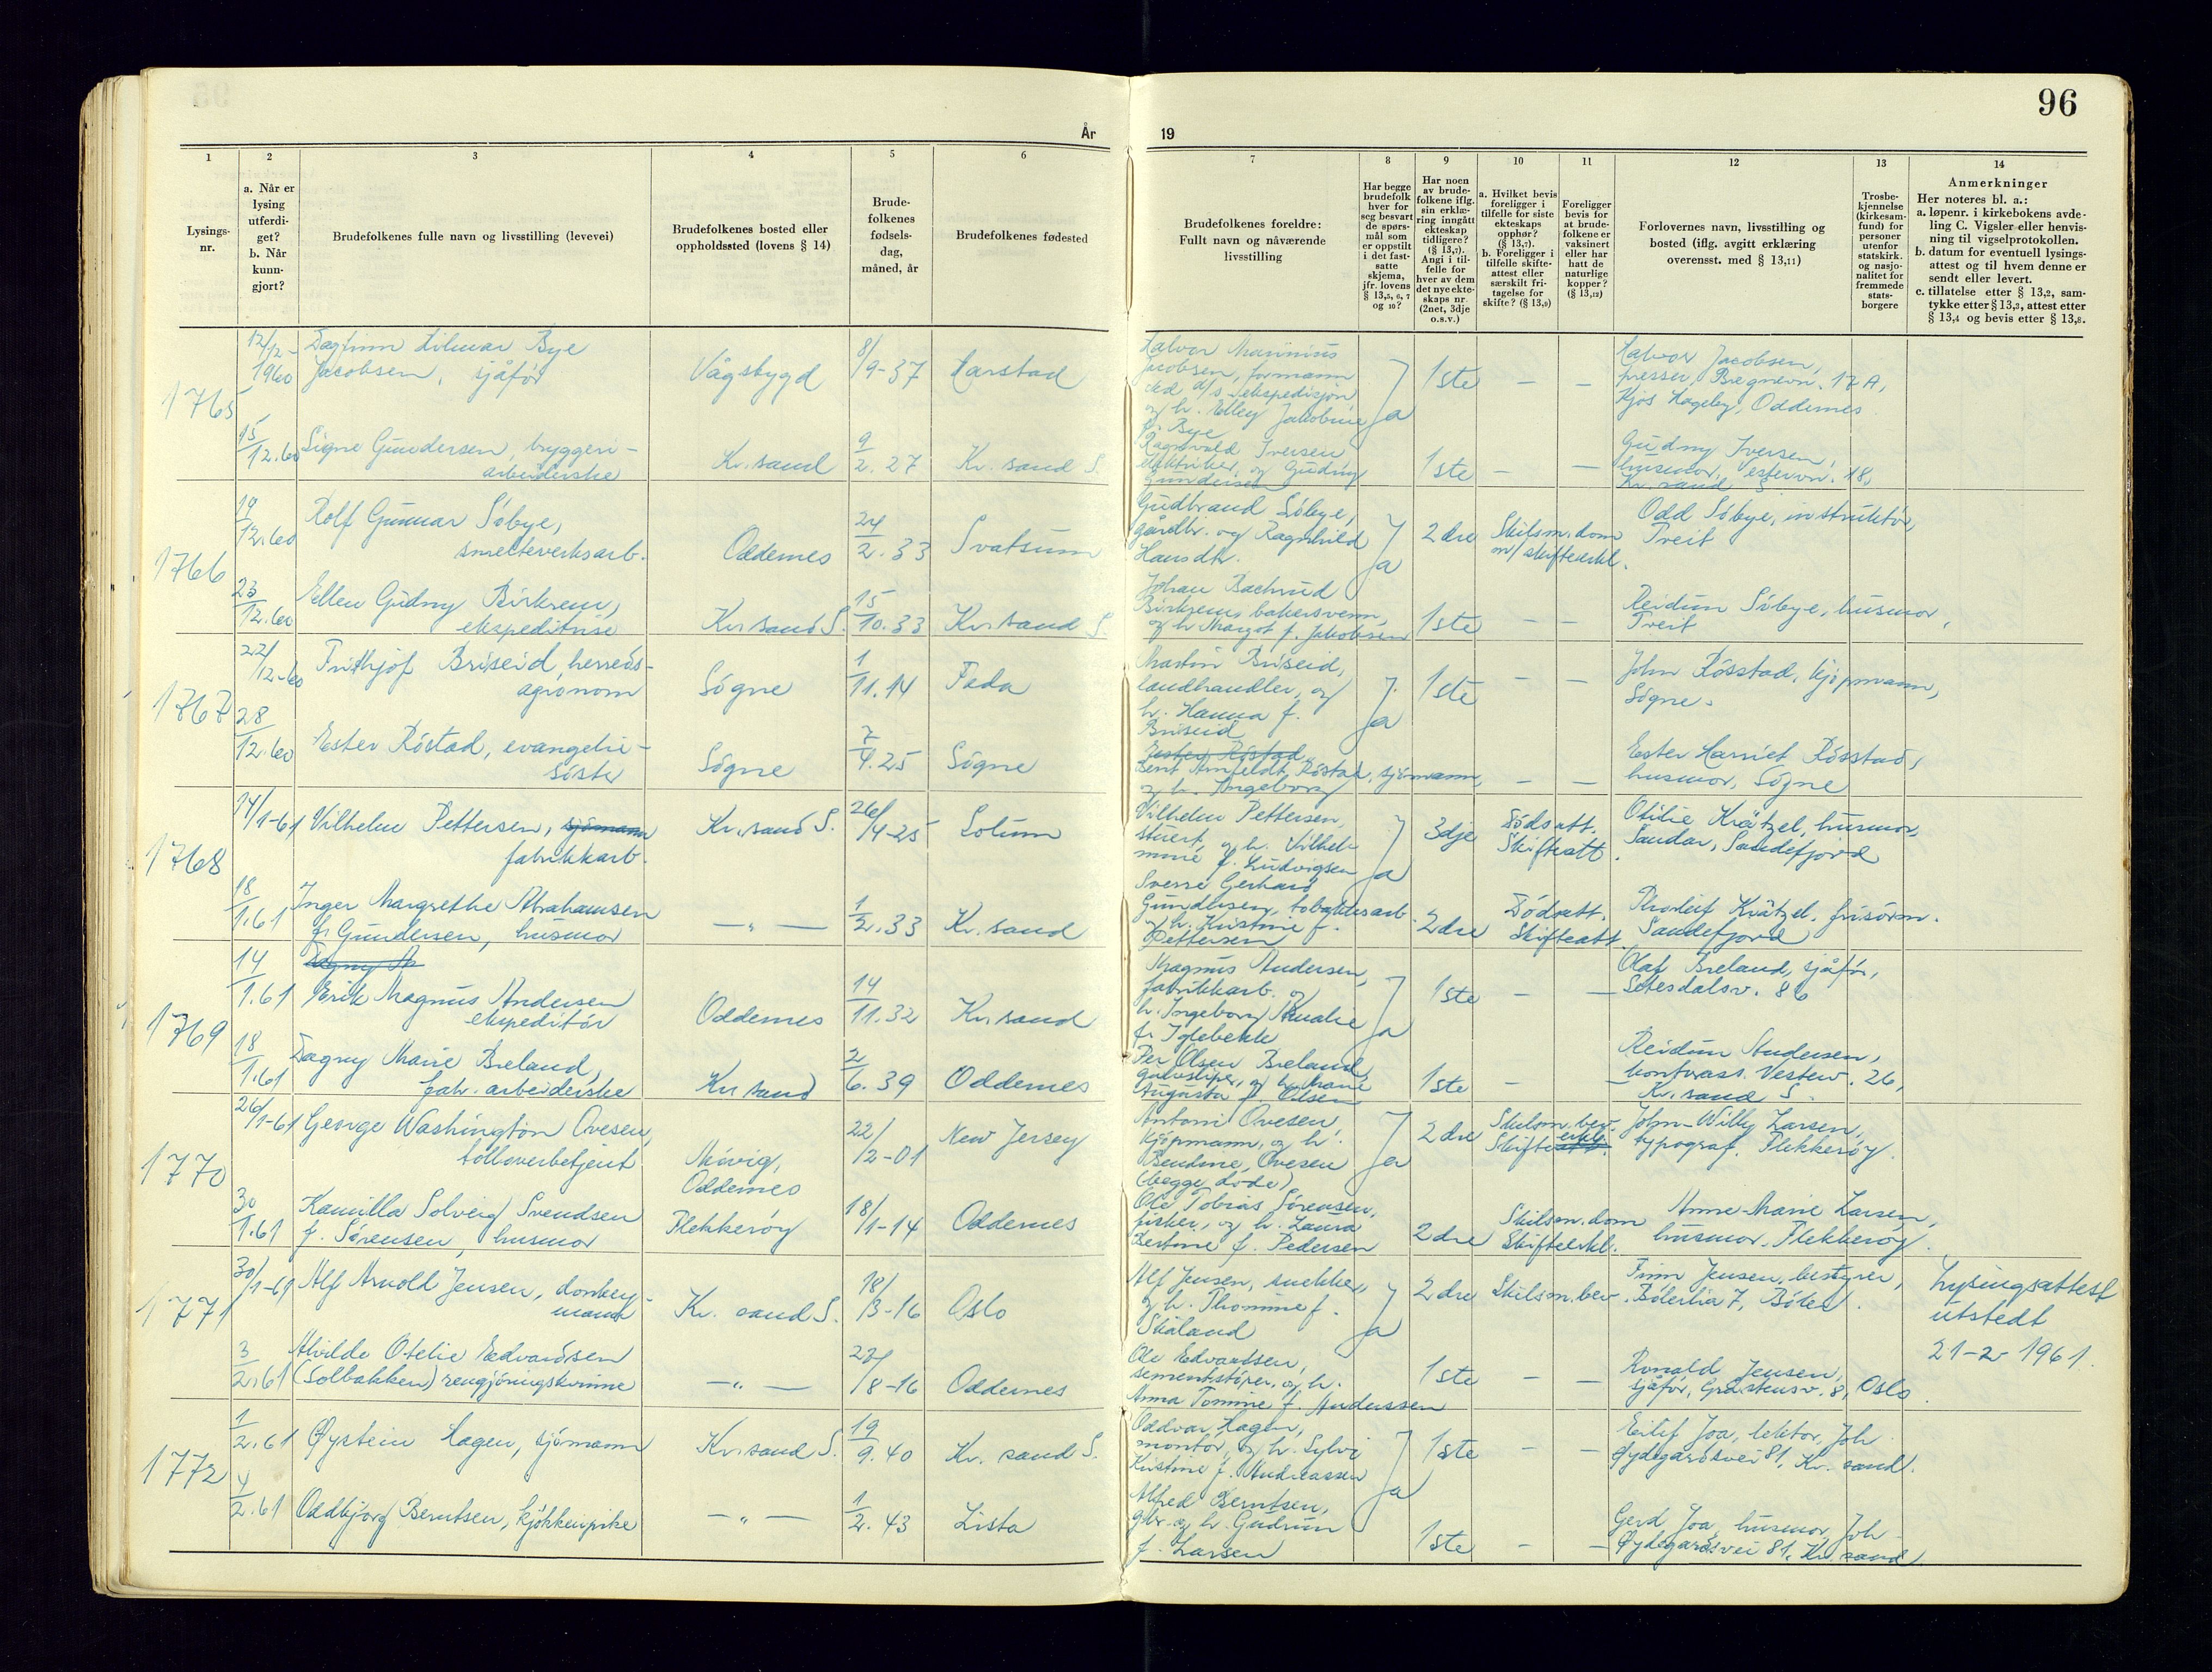 96
År 19
1
2
3
4
5
6
7
8
9
10
11
12
13
14
Lysings-
nr.
a. Når er
lysing
utferdi-
get?
b. Når
kunn-
gjort?
Brudefolkenes fulle navn og livsstilling (levevei)
Brudefolkenes bosted eller
oppholdssted (lovens § 14)
Brude-
folkenes
fødsels-
dag,
måned, år
Brudefolkenes fødested
Brudefolkenes foreldre:
Fullt navn og nåværende
livsstilling
Har begge
brudefolk
hver for
seg besvart
de spørs-
mål som
er oppstilt
i det fast-
satte
skjema,
jfr. lovens
§ 13,5, 6, 7
og 10?
Har noen
av brude-
folkene iflg.
sin erklæ-
ring inngått
ekteskap
tidligere?
(§ 13,7).
Angi i til-
felle for
hver av dem
det nye ekte-
skaps nr.
(2net, 3dje
o.s.v.)
a. Hvilket bevis
foreligger i
tilfelle for siste
ekteskaps
opphør?
(§ 13,7).
b. Foreligger i
tilfelle skifte-
attest eller
særskilt fri-
tagelse for
skifte? (§ 13,9)
Foreligger
bevis for
at brude-
folkene er
vaksinert
eller har
hatt de
naturlige
kopper?
(§ 13,12)
Forlovernes navn, livsstilling og
bosted (iflg. avgitt erklæring
overensst. med § 13,11)
Trosbe-
kjennelse
(kirkesam-
fund) for
personer
utenfor
statskirk.
og nasjo-
nalitet for
fremmede
stats-
borgere
Anmerkninger
Her noteres bl. a.:
a. løpenr. i kirkebokens avde-
ling C. Vigsler eller henvis-
ning til vigselprotokollen.
b. datum for eventuell lysings-
attest og til hvem denne er
sendt eller levert.
c. tillatelse etter § 13,2, sam-
tykke etter § 13,3, attest etter
§ 13,4 og bevis etter § 13,8.
1765
12/12-
1960
Dagfinn Hilmar Bye
Jacobsen, sjåfør
Vågsbygd
8/9-37
Harstad
Halvor Marinius
Jacobsen, formann
ved d/s-ekspedisjon
og h. Elley Jakobine
f. Bye
Ja
1ste
–
–
Halvor Jacobsen,
presser, Bregnevn. 17 A,
Kjos Hageby, Oddernes
15/12.60
Signe Gundersen, bryggeri-
arbeiderske
Kr.sand
9/2.27
Kr. sand S.
Ragnvald Iversen
elektriker, og Gudny
Gundersen
1ste
–
–
Gudny Iversen,
husmor, Vestervn. 18,
Kr. sand S
1766
19/12.60
Rolf Gunnar Söbye,
smelteverksarb.
Oddernes
24/2.33
Svatsum
Gudbrand Söbye,
gårdbr. og Ragnhild
Hansdtr.
Ja
2dre
Skilsm.dom
m/ skifteerkl.
Odd Söbye, instruktør,
Treit
23/12.60
Ellen Gudny Birkrem,
ekspeditrise
Kr.sand S.
15/10.33
Kr.sand S.
Johan Bachrud
Birkrem, bakersvenn,
og h. Margot f. Jakobsen
1ste
–
–
Reidun Söbye, husmor,
Treit
1767
22/12-60
Frithjof Briseid, herreds-
agronom
Sögne
1/11.14
Feda
Martin Briseid,
landhandler, og
h. Hanna f.
Briseid
Ja
1ste
–
–
John Rösstad, kjöpmann,
Sögne.
28/12.60
Ester Röstad, evangelie-
söster
Sögne
7/4.25
Sögne
Ester Röstad
Bent Arnfeldt Röstad, sjömann,
og h. Ingeborg
–
–
Ester Harriet Rösstad,
husmor, Sögne
1768
14/1-61
Vilhelm Pettersen, sjömann
fabrikkarb.
Kr.sand S.
26/4-25
Solum
Vilhelm Pettersen,
stuert, og h. Vilhel-
mine f. Ludvigsen
Ja
3dje
Dödsatt.
Skifteatt.
Otilie Krätzel, husmor,
Sandar, Sandefjord
18/1.61
Inger Margrethe Abrahamsen
f. Gundersen, husmor
—„—
1/2.33
Kr. sand
Sverre Gerhard
Gundersen, tobakksarb.
og h. Kristine f.
Pettersen
2dre
Dödsatt.
Skifteatt.
Thorleif Krätzel, frisörm.
Sandefjord
1769
14/1.61
Dagny M
Erik Magnus Andersen
ekspeditör
Oddernes
14/11.32
Kr.sand
Magnus Andersen,
fabrikkarb. og
h. Ingeborg Amalie
f. Iglebekk
Ja
1ste
–
–
Olaf Breland, sjåfør,
Setesdalsv. 86
18/1.61
Dagny Marie Breland,
fabr.arbeiderske
Kr sand
2/6.39
Oddernes
Per Olsen Breland,
gulvsliper, og h. Marie
Augusta f. Olsen
1ste
–
–
Reidun Andersen,
kontorass. Vesterv. 26,
Kr. sand S.
1770
26/1-61
George Washington Ovesen,
tolloverbetjent
Mövig,
Oddernes
22/2-01
New Jersey
Antoni Ovesen,
kjöpmann, og h.
Bendine, Ovesen
(begge døde)
Ja
2dre
Skilsm.bev.
Skifteerkl.
John-Willy Larsen,
typograf. Flekkerøy.
30/1.61
Kamilla Solveig Svendsen
f. Sörensen, husmor
Flekkerøy
18/1-14
Oddernes
Ole Tobias Sörensen,
fisker, og h. Laura
Bertine f. Pedersen
2dre
Skilsm.dom
Skifteerkl.
Anne-Marie Larsen,
husmor, Flekkerøy.
1771
30/1-61
Alf Arnold Jensen, donkey-
mann
Kr. sand S.
18/3-16
Oslo
Alf Jensen, snekker,
og h. Thomine f.
Skåland
Ja
2dre
Skilsm.bev.
Finn Jensen, bestyrer,
Bölerlia 7, Böler.
Lysingsattest
utstedt
21-2-1961.
3/2.61
Alvilde Otelie Edvardsen
(Solbakken) rengjöringskvinne
—„—
22/8-16
Oddernes
Ole Edvardsen,
sementstöper, og h.
Anna Tomine f. Anderssen
1ste
–
–
Ronald Jensen,
sjåför, Gråstensv. 8, Oslo.
1772
1/2.61
Øystein Hagen, sjömann
Kr.sand S.
19/9.40
Kr. sand S.
Oddvar Hagen,
montör, og h. Sylvi
Kristine f. Andreassen
Ja
1ste
–
–
Eilif Joa, lektor, Joh.
Øydegårdsvei 81, Kr. sand.
4/2.61
Oddbjörg Berntsen, kjökkenpike
—„—
1/2.43
Lista
Alfred Berntsen,
gbr. og h. Gudrun
f. Larsen
1ste
–
–
Gerd Joa, husmor, Joh
Øydegårdsvei 81, Kr. sand.